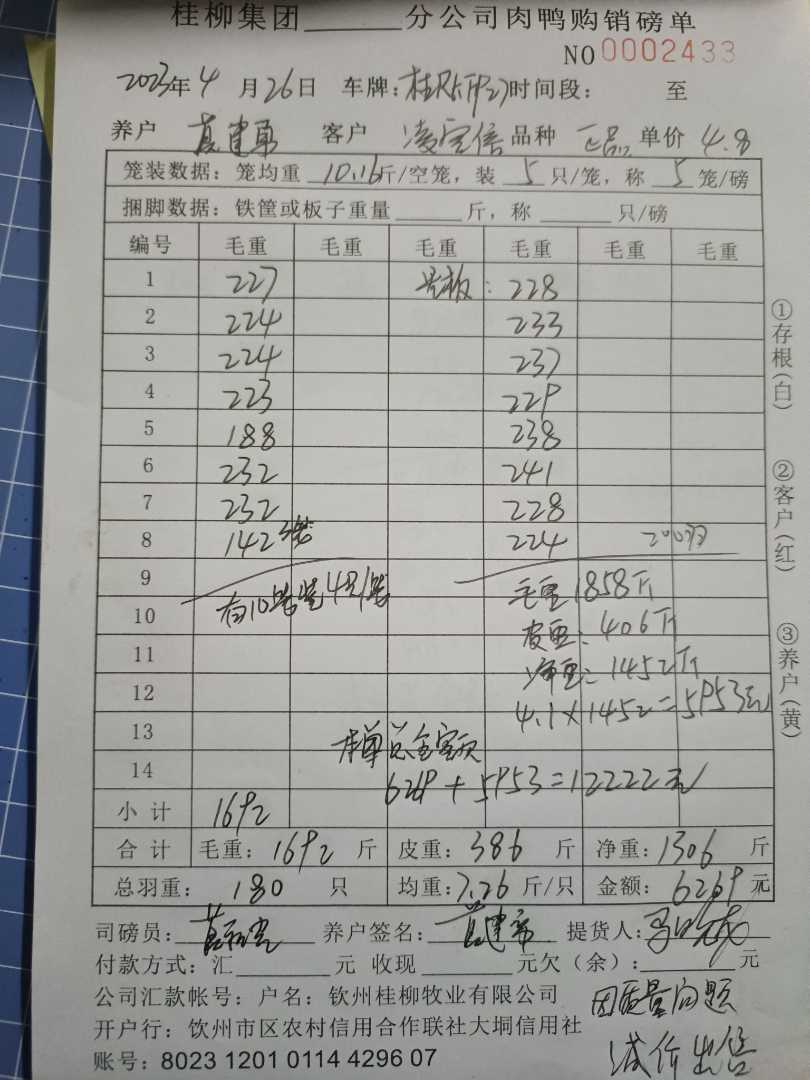 桂柳集团______分公司肉鸭购销磅单
NO 0002433
2023年4月26日 车牌: 时间段: 至
养户 客户 凌宝倍 品种 正品 单价 4.8
笼装数据: 笼均重 10.16 斤/空笼, 装 5 只/笼, 称 5 笼/磅
捆脚数据: 铁筐或板子重量______斤, 称______只/磅
编号 毛重 毛重 毛重 毛重 毛重 毛重
1 227 另板: 228
2 224 233
3 224 237
4 223 229
5 188 238
6 232 241
7 232 228
8 142 3笼 224 200羽
9 有10笼装4只/笼 毛重1858斤
10 皮重: 406斤
11 净重: 1452斤
12 4.1×1452=5953元
13 本单总金额
14 6269+5953=12222元
小计 1692
合计 毛重: 1692 斤 皮重: 386 斤 净重: 1306 斤
总羽重: 180 只 均重: 7.26 斤/只 金额: 6269 元
司磅员: 养户签名: 提货人:
付款方式: 汇______元 收现______元欠(余):______元
公司汇款帐号: 户名: 钦州桂柳牧业有限公司
因质量问题
开户行: 钦州市区农村信用合作联社大垌信用社
减价出售
账号: 8023 1201 0114 4296 07
①存根(白)
②客户(红)
③养户(黄)